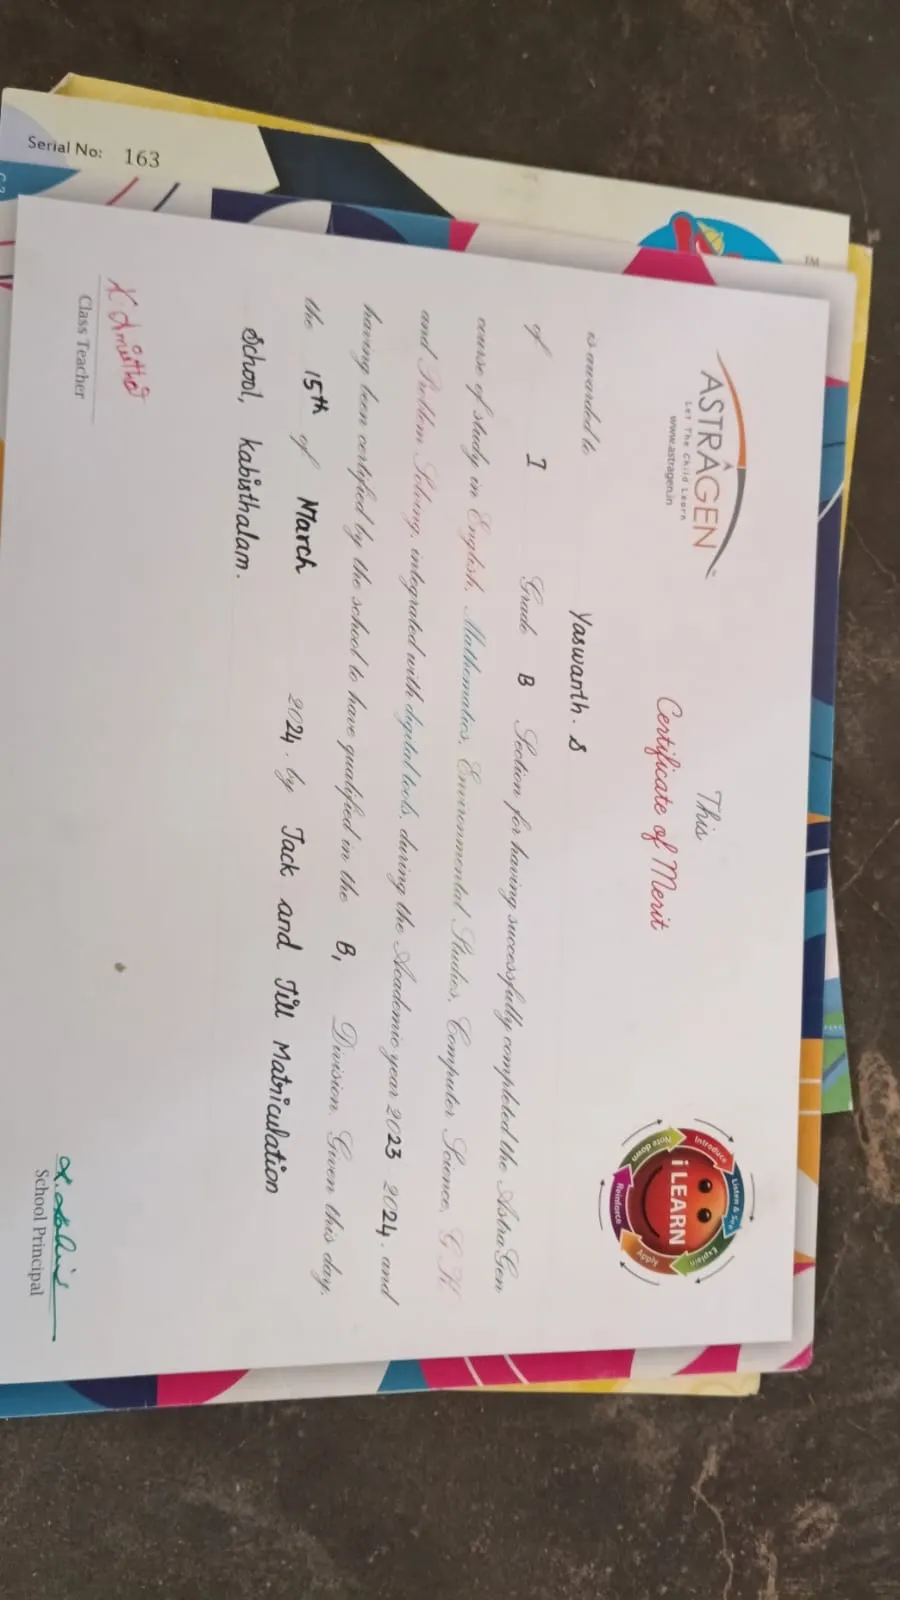 Serial No: 163
TM
ASTRAGEN
Let The Child Learn
www.astragen.in
This
Certificate of Merit
Introduce
Listen & Say
Explain
Apply
Reinforce
Note down
i LEARN
is awarded to Yaswanth. S
of I Grade B Section for having successfully completed the AstraGen
course of study in English, Mathematics, Environmental Studies, Computer Science, G.K
and Problem Solving, integrated with digital tools, during the Academic year 2023 2024, and
having been certified by the school to have qualified in the B1 Division. Given this day,
the 15th of March 2024. by Jack and Jill Matriculation
School, kabisthalam.
Class Teacher
School Principal